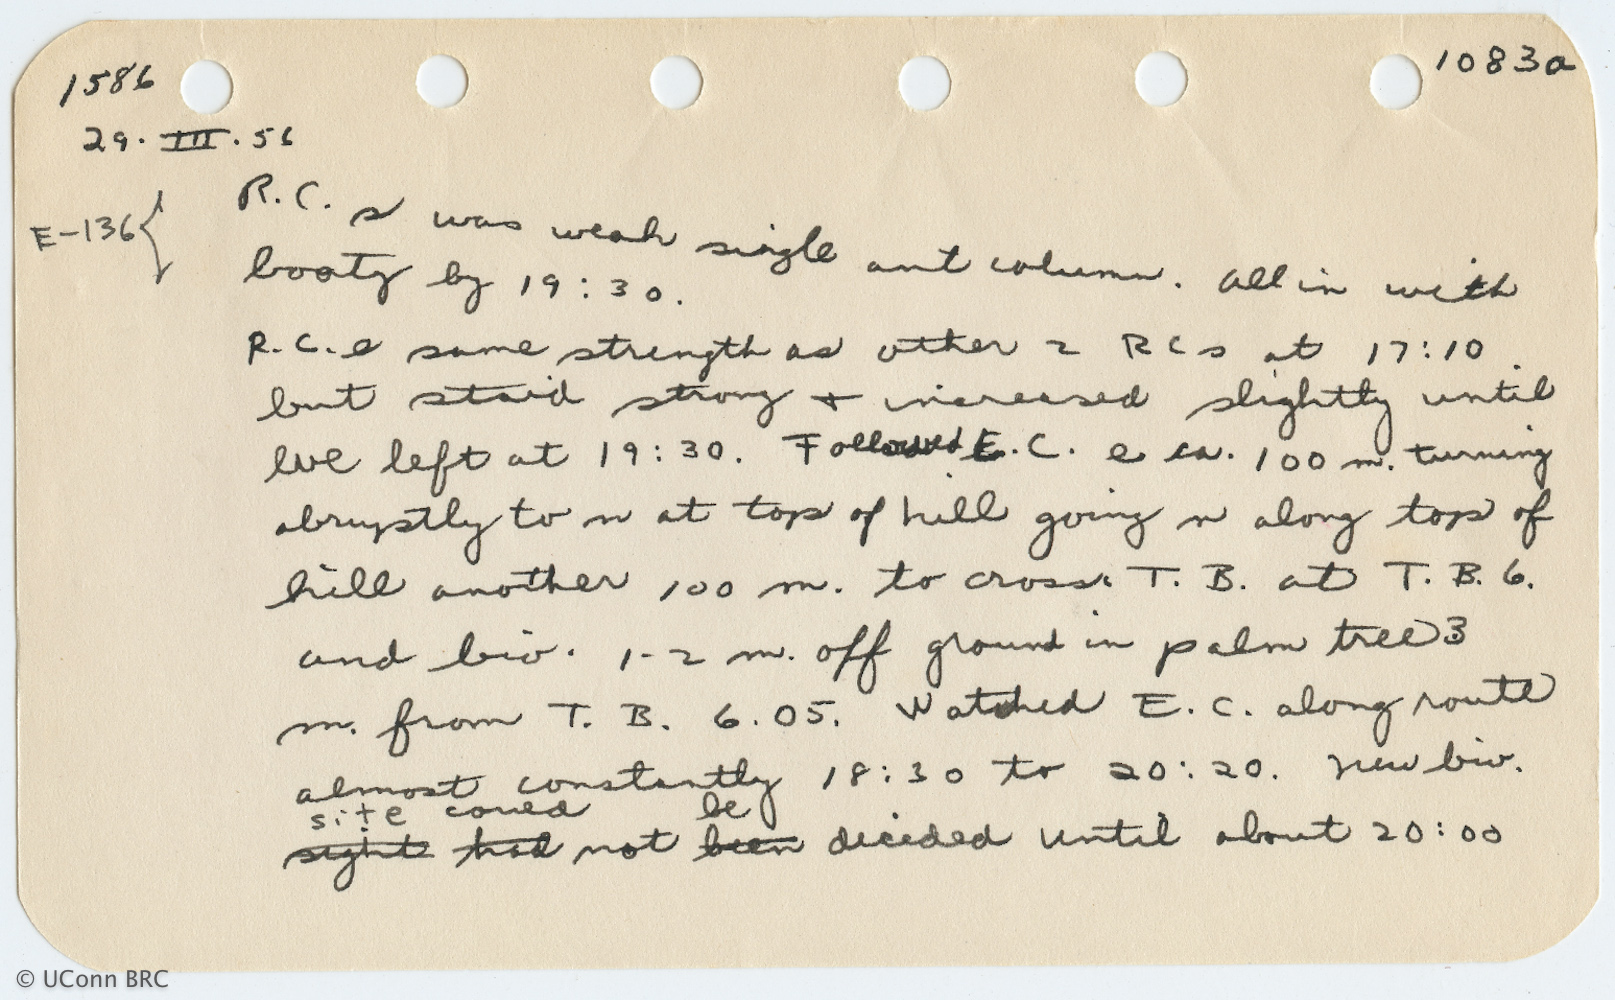 1586 1083a
29. III. 56
E-136 { R.C. s was weak single ant column. All in with
booty by 19:30.
R.C. e same strength as other 2 RCs at 17:10
but staid strong + increased slightly until
we left at 19:30. Followed E.C. e ca. 100 m. turning
abruptly to n at top of hill going n along top of
hill another 100 m. to cross T. B. at T. B. 6.
and biv. 1-2 m. off ground in palm tree 3
m. from T. B. 6.05. Watched E.C. along route
almost constantly 18:30 to 20:20. New biv.
site could be
sight had not been decided until about 20:00
© UConn BRC